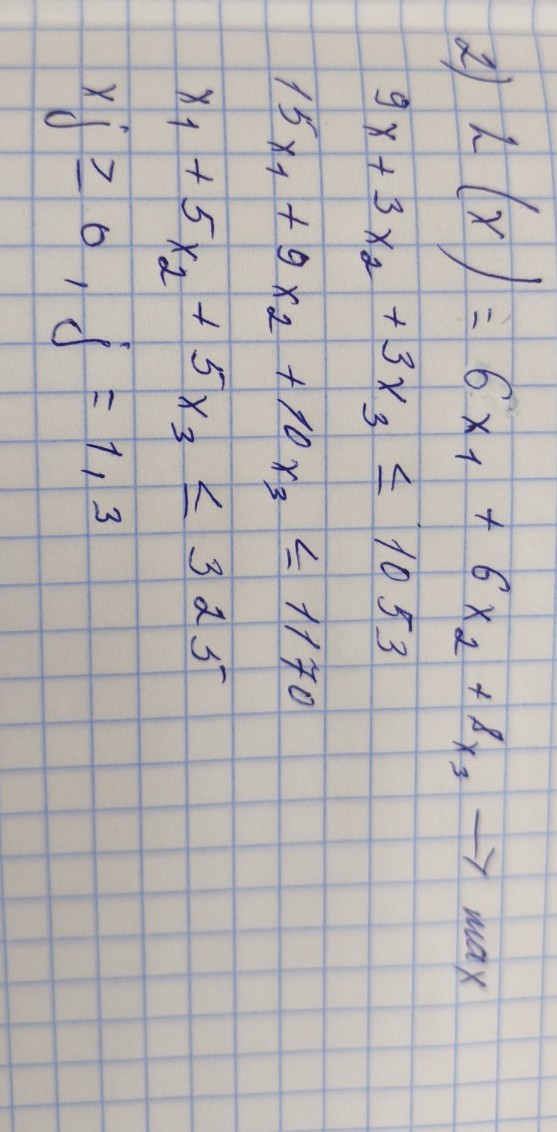 2) L(x) = 6x₁ + 6x₂ + 8x₃ → max
9x + 3x₂ + 3x₃ ≤ 1053
15x₁ + 9x₂ + 10x₃ ≤ 1170
x₁ + 5x₂ + 5x₃ ≤ 325
xj ≥ 0, j = 1,3